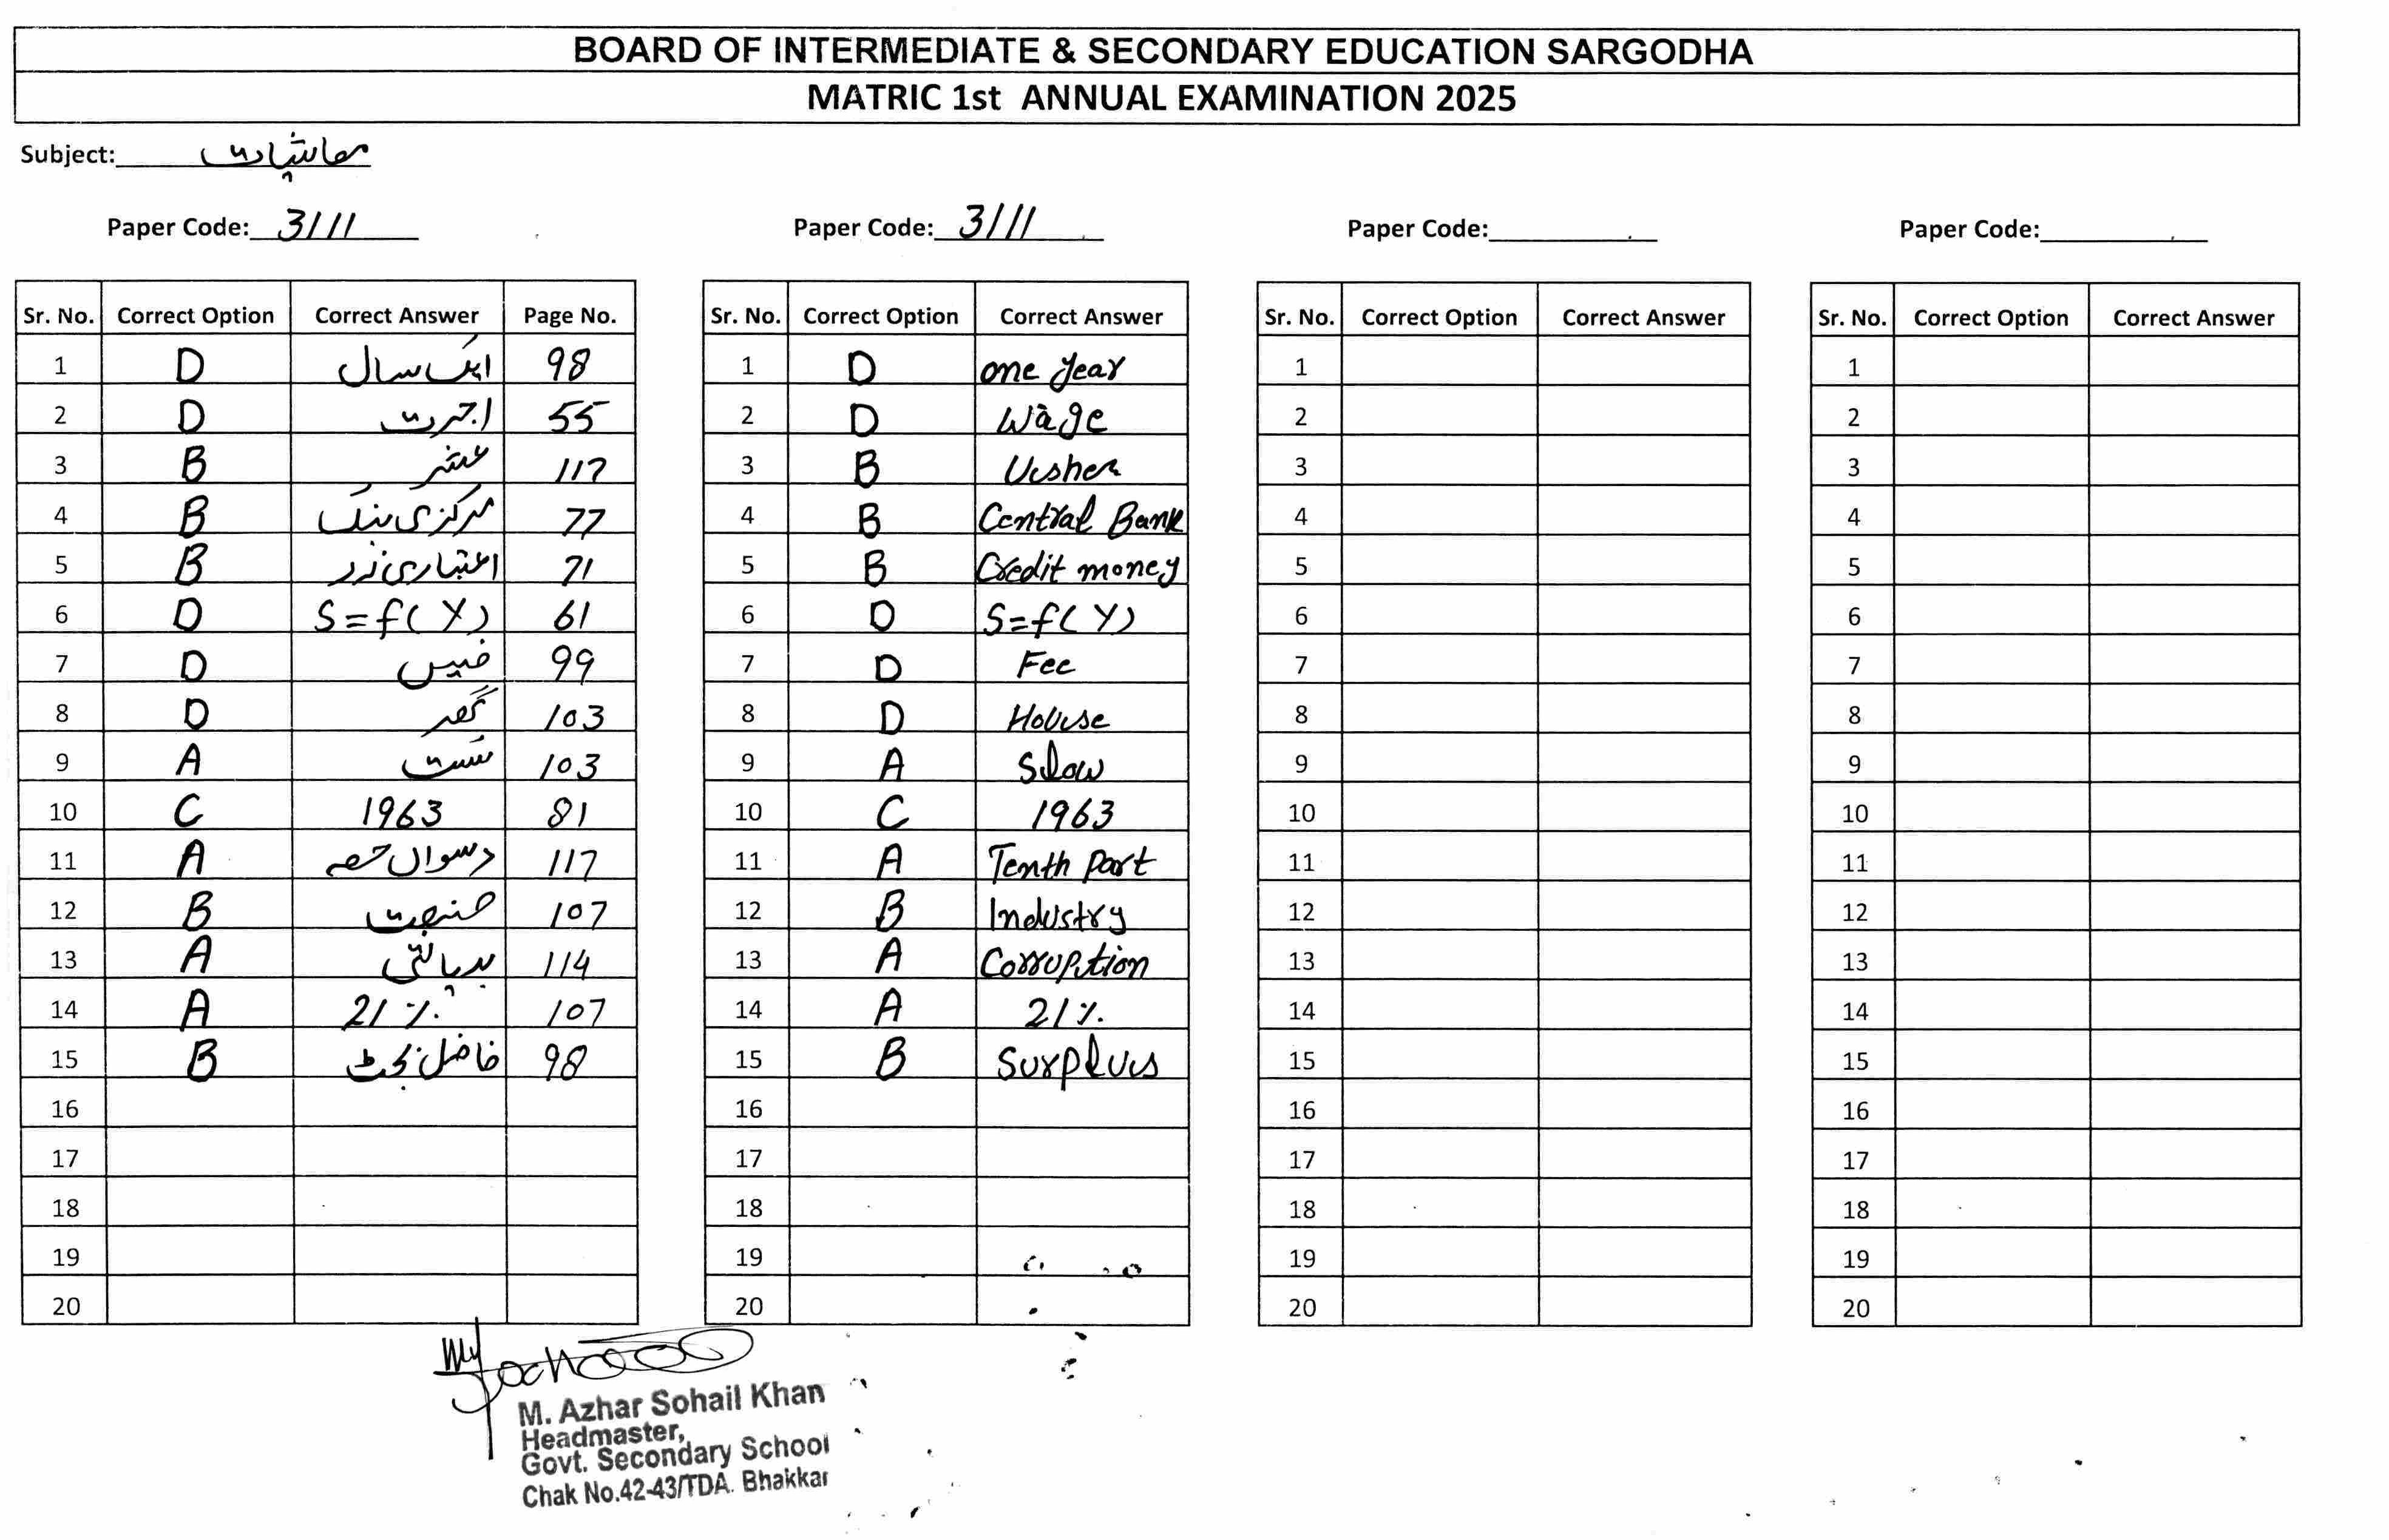 BOARD OF INTERMEDIATE & SECONDARY EDUCATION SARGODHA
MATRIC 1st ANNUAL EXAMINATION 2025
Subject: معاشیات
Paper Code: 3111 Paper Code: 3111 Paper Code: Paper Code:
Sr. No. Correct Option Correct Answer Page No. Sr. No. Correct Option Correct Answer Sr. No. Correct Option Correct Answer Sr. No. Correct Option Correct Answer
1 D ایک سال 98 1 D one year 1 1
2 D اجرت 55 2 D Wage 2 2
3 B عشر 117 3 B Usher 3 3
4 B مرکزی بنک 77 4 B Central Bank 4 4
5 B اعتباری زر 71 5 B Credit money 5 5
6 D S=f(Y) 61 6 D S=f(Y) 6 6
7 D فیس 99 7 D Fee 7 7
8 D گھر 103 8 D House 8 8
9 A سُست 103 9 A Slow 9 9
10 C 1963 81 10 C 1963 10 10
11 A دسواں حصہ 117 11 A Tenth Part 11 11
12 B صنعت 107 12 B Industry 12 12
13 A 114 13 A Corruption 13 13
14 A 21% 107 14 A 21% 14 14
15 B فاضل بجٹ 98 15 B Surplus 15 15
16 16 16 16
17 17 17 17
18 18 18 18
19 19 19 19
20 20 20 20
M. Azhar Sohail Khan
Headmaster,
Govt. Secondary School
Chak No.42-43/TDA. Bhakkar